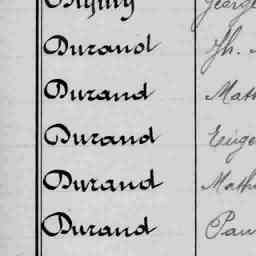 Durand Th.
Durand Math
Durand Euge
Durand Math
Durand Pau